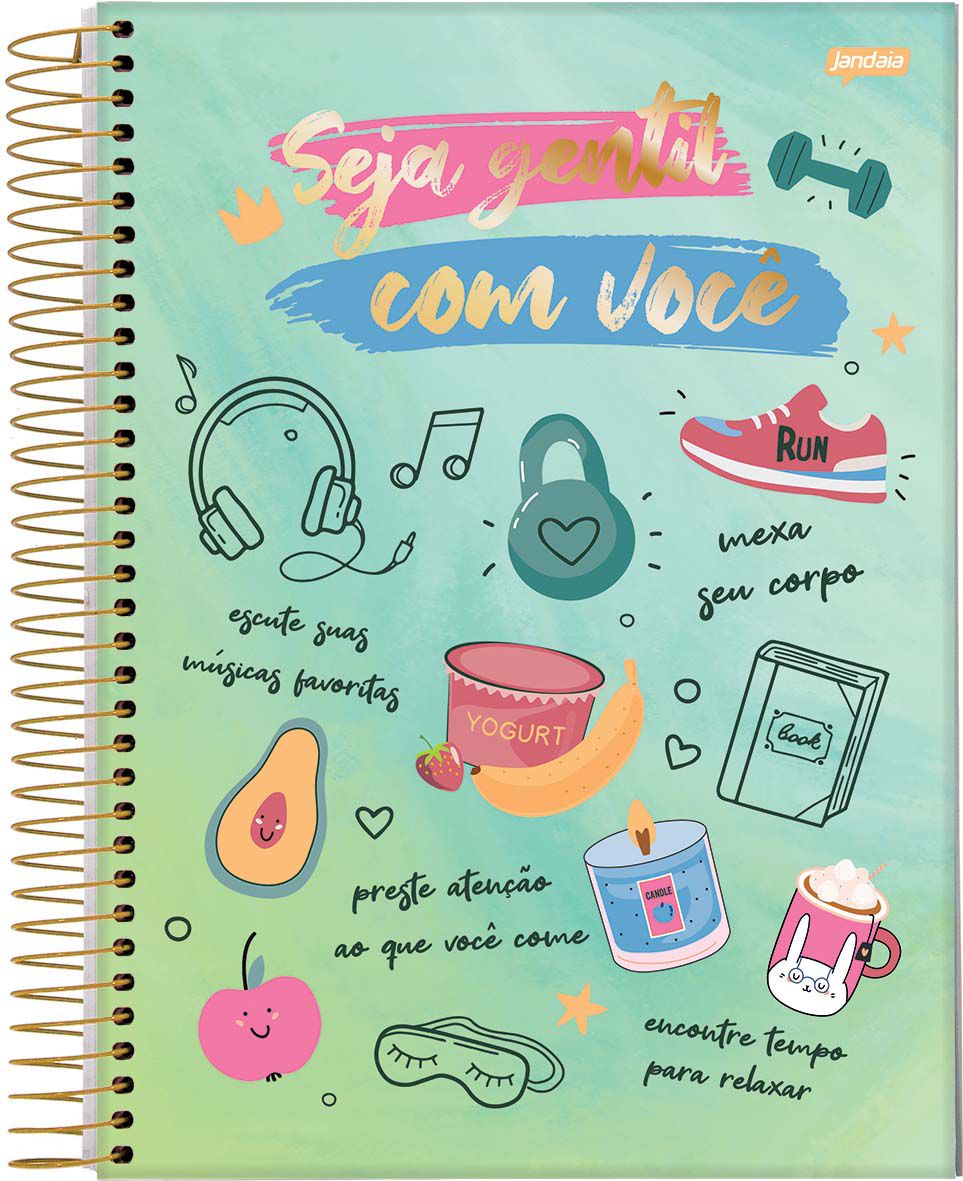 Jandaia
Seja gentil
com você
RUN
mexa
seu corpo
escute suas
músicas favoritas
YOGURT
Book
CANDLE
preste atenção
ao que você come
encontre tempo
para relaxar